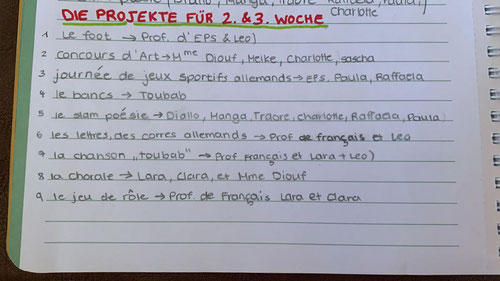 Charlotte
DIE PROJEKTE FÜR 2. & 3. WOCHE
1 Le foot → Prof. d'EPS & Leo)
2 Concours d'Art → Mme Diouf, Heike, Charlotte, Sascha
3 journée de jeux sportifs allemands → EPS, Paula, Raffaela
4 le bancs → Toubab
5 le slam poésie → Diallo, Manga, Traore, Charlotte, Raffaela, Paula
6 les lettres, des corres allemands → Prof de français et Leo
7 la chanson „toubab" → Prof Français et Lara + Leo)
8 la chorale → Lara, Clara, et Mme Diouf
9 le jeu de rôle → Prof. de Français Lara et Clara